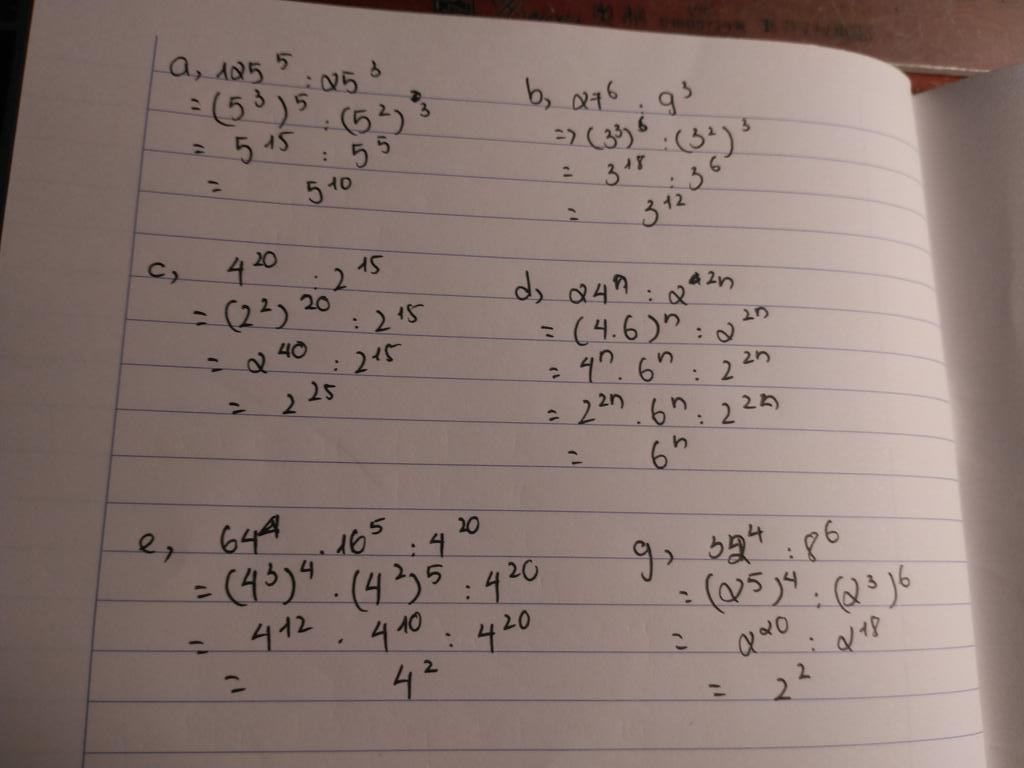 a, 125⁵ : 25³
= (5³)⁵ : (5²)³
= 5¹⁵ : 5⁵
= 5¹⁰
b, 27⁶ : 9³
=> (3³)⁶ : (3²)³
= 3¹⁸ : 3⁶
= 3¹²
c, 4²⁰ : 2¹⁵
= (2²)²⁰ : 2¹⁵
= 2⁴⁰ : 2¹⁵
= 2²⁵
d, 24ⁿ : 2²ⁿ
= (4.6)ⁿ : 2²ⁿ
= 4ⁿ . 6ⁿ : 2²ⁿ
= 2²ⁿ . 6ⁿ : 2²ⁿ
= 6ⁿ
e, 64⁴ . 16⁵ : 4²⁰
= (4³)⁴ . (4²)⁵ : 4²⁰
= 4¹² . 4¹⁰ : 4²⁰
= 4²
g, 32⁴ : 8⁶
= (2⁵)⁴ : (2³)⁶
= 2²⁰ : 2¹⁸
= 2²